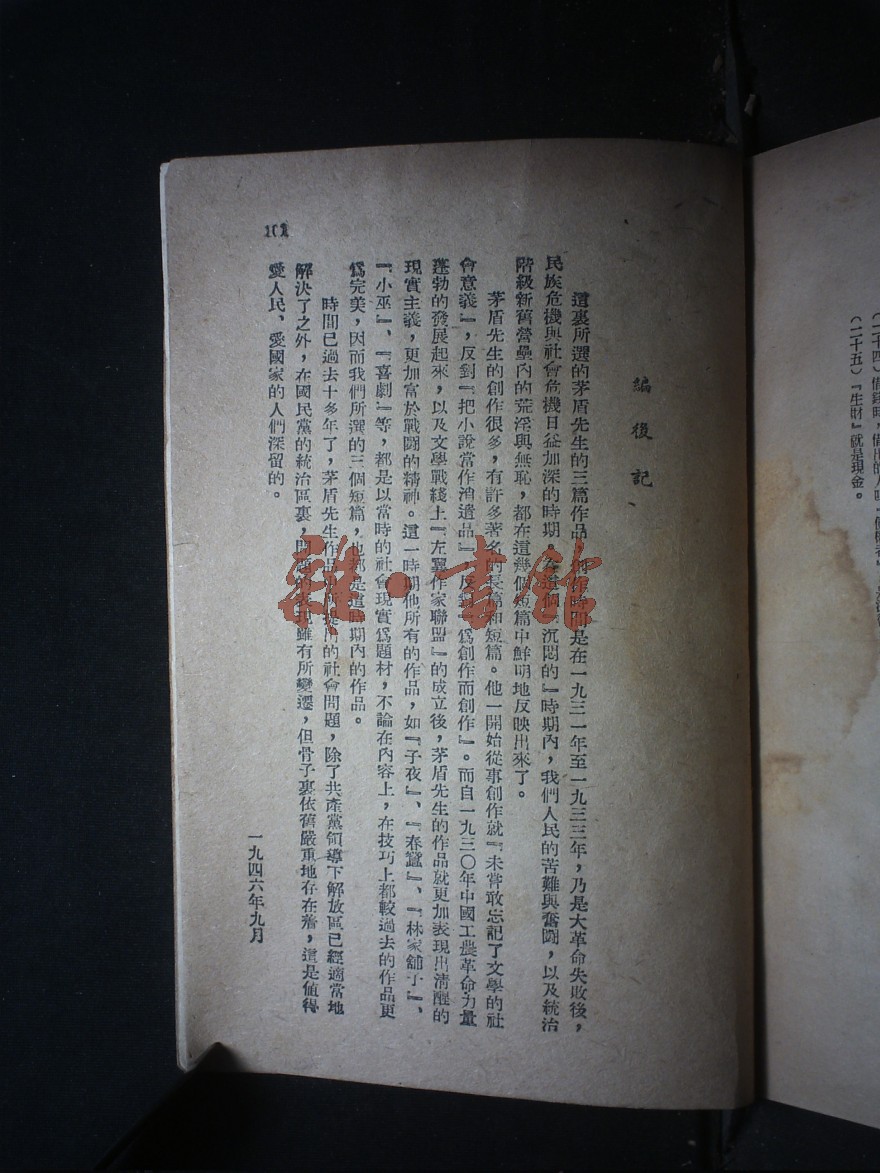 （二十五）『生財』就是現金。
編後記
這裏所選的茅盾先生的三篇作品，創作時間是在一九三一年至一九三三年，乃是大革命失敗後，
民族危機與社會危機日益加深的時期。在這個『沉悶的』時期內，我們人民的苦難與奮鬭，以及統治
階級新舊營壘內的荒淫與無恥，都在這幾個短篇中鮮明地反映出來了。
茅盾先生的創作很多，有許多著名的長篇和短篇。他一開始從事創作就『未嘗敢忘記了文學的社
會意義』，反對『把小說當作消遣品』，反對『爲創作而創作』。而自一九三〇年中國工農革命力量
蓬勃的發展起來，以及文學戰綫上『左翼作家聯盟』的成立後，茅盾先生的作品就更加表現出清醒的
現實主義，更加富於戰鬭的精神。這一時期他所有的作品，如『子夜』、『春蠶』、『林家舖子』、
『小巫』、『喜劇』等，都是以當時的社會現實爲題材，不論在內容上，在技巧上都較過去的作品更
爲完美，因而我們所選的三個短篇，也都是這時期內的作品。
時間已過去十多年了，茅盾先生作品中所提出的社會問題，除了共產黨領導下解放區已經適當地
解決了之外，在國民黨的統治區裏，問題的表現雖有所變遷，但骨子裏依舊嚴重地存在着，這是値得
愛人民，愛國家的人們深留的。
一九四六年九月
雜·書館